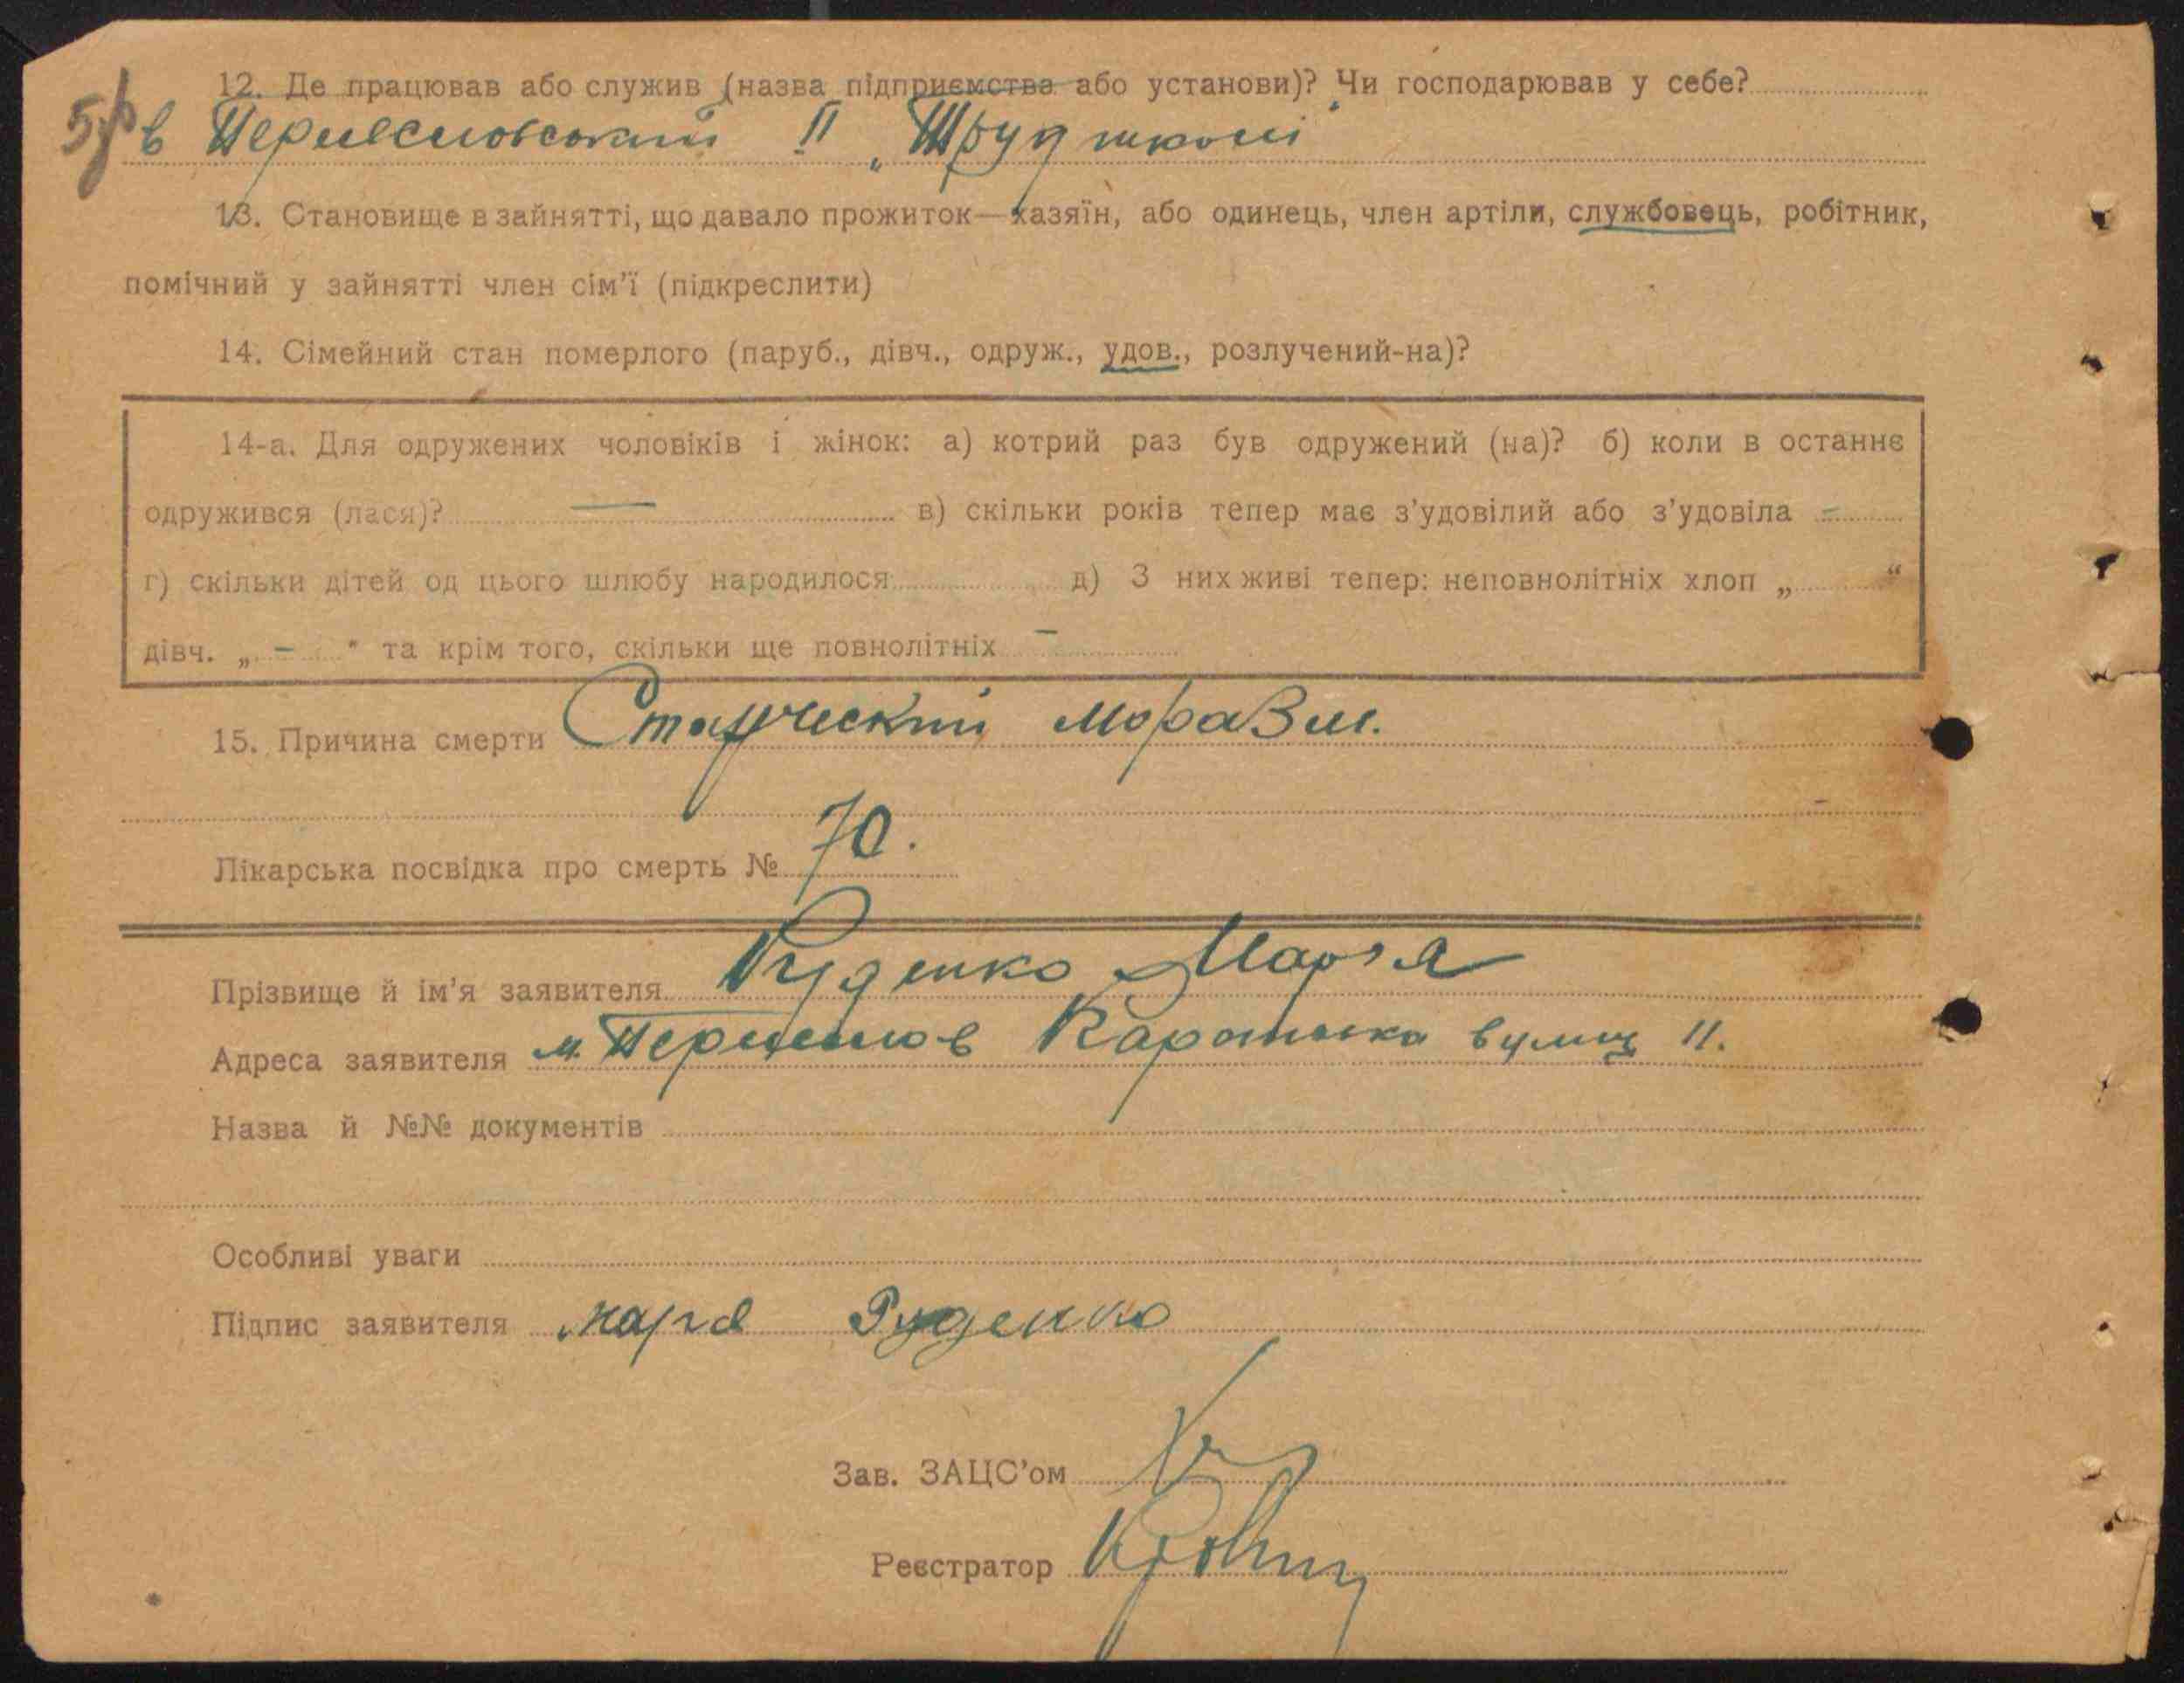 12. Де працював або служив (назва підприємства або установи)? Чи господарював у себе?
в Переяславський II „Труд школі
13. Становище в зайнятті, що давало прожиток—хазяїн, або одинець, член артіли, службовець, робітник,
помічний у зайнятті член сім'ї (підкреслити)
14. Сімейний стан померлого (паруб., дівч., одруж., удов., розлучений-на)?
14-а. Для одружених чоловіків і жінок: а) котрий раз був одружений (на)? б) коли в останнє
одружився (лася)? — в) скільки років тепер має з'удовілий або з'удовіла –
г) скільки дітей од цього шлюбу народилося д) З них живі тепер: неповнолітніх хлоп „ “
дівч. „ – “ та крім того, скільки ще повнолітніх –
15. Причина смерти Старческий моразм.
Лікарська посвідка про смерть № 70.
Прізвище й ім'я заявителя Руденко Мар'я
Адреса заявителя м. вулиц 11.
Назва й №№ документів
Особливі уваги
Підпис заявителя Марія Руденко
Зав. ЗАЦС'ом
Реєстратор